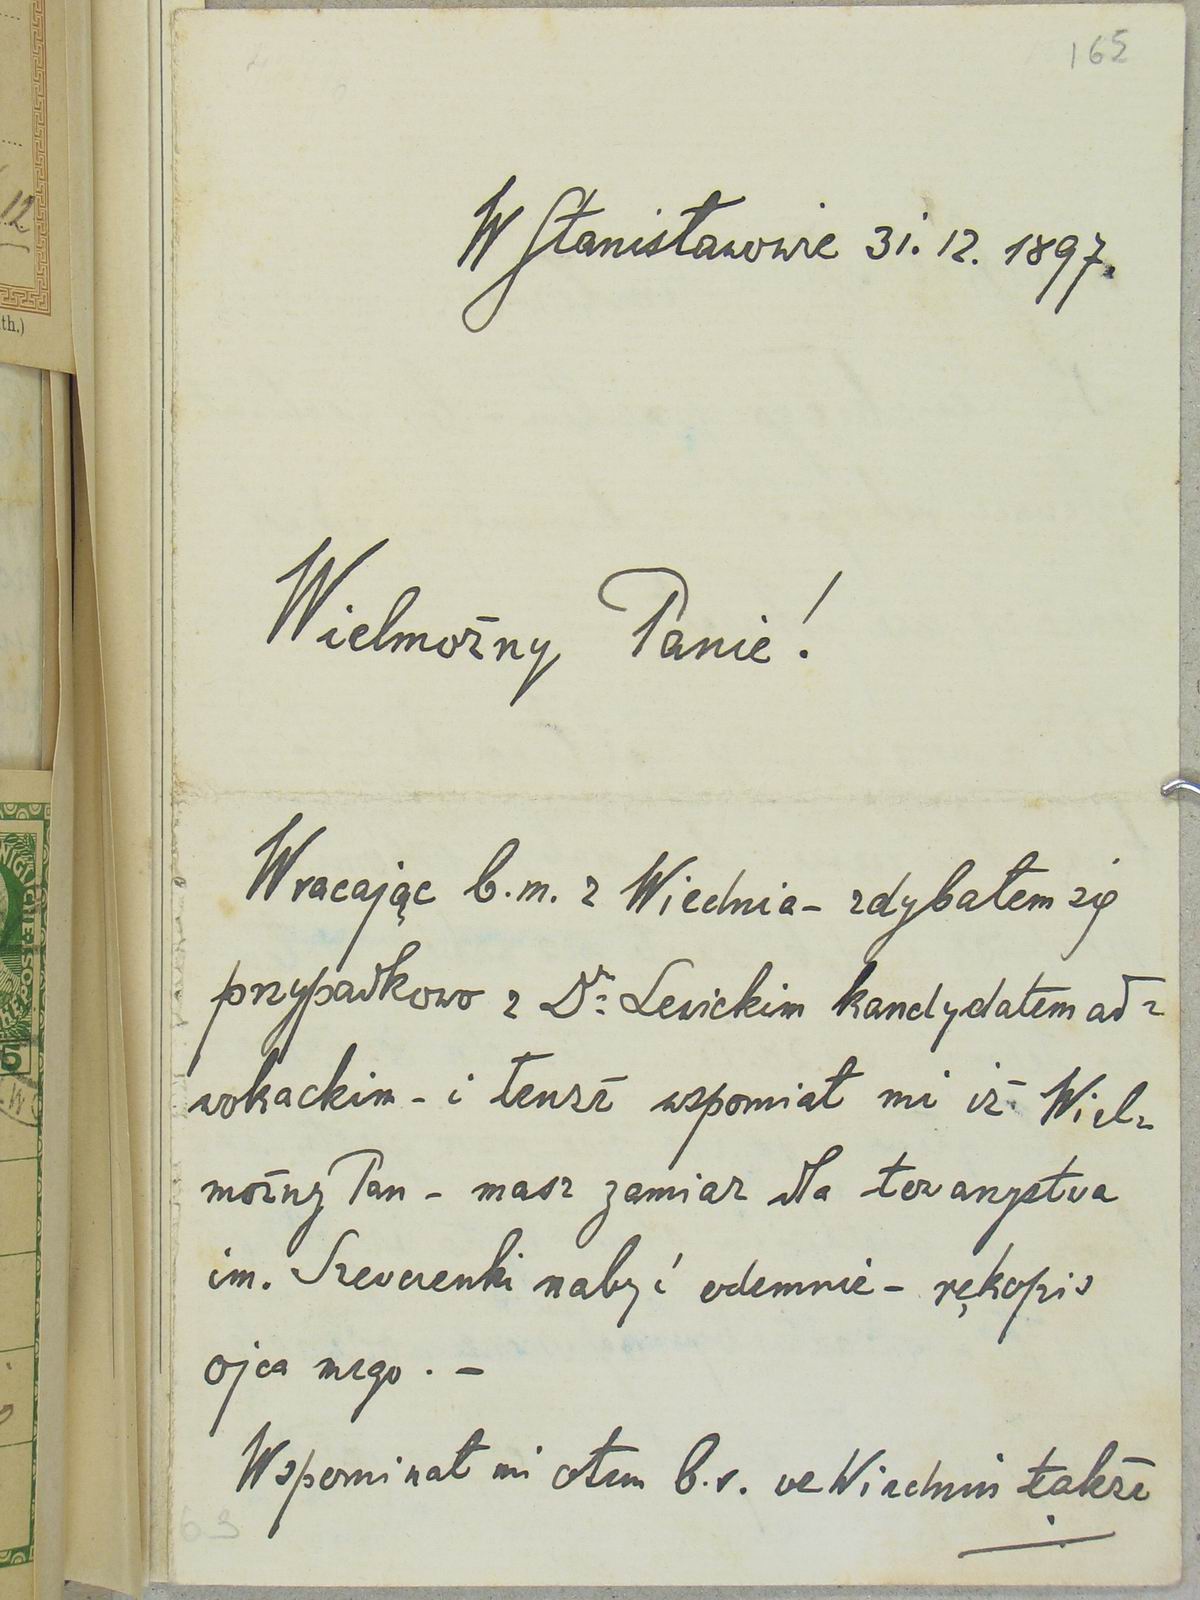 165
W Stanisławowie 31. 12. 1897.
Wielmożny Panie!
Wracając b.m. z Wiednia – zdybałem się
przypadkowo z Dr. Lewickim kandydatem ad-
wokackim – i tenże wspomiał mi iż Wiel-
możny Pan – masz zamiar dla towarzystwa
im. Szewczenki nabyć odemnie – rękopis
ojca mego. –
Wspominał mi otem b.r. we Wiedniu także
12
th.)
63